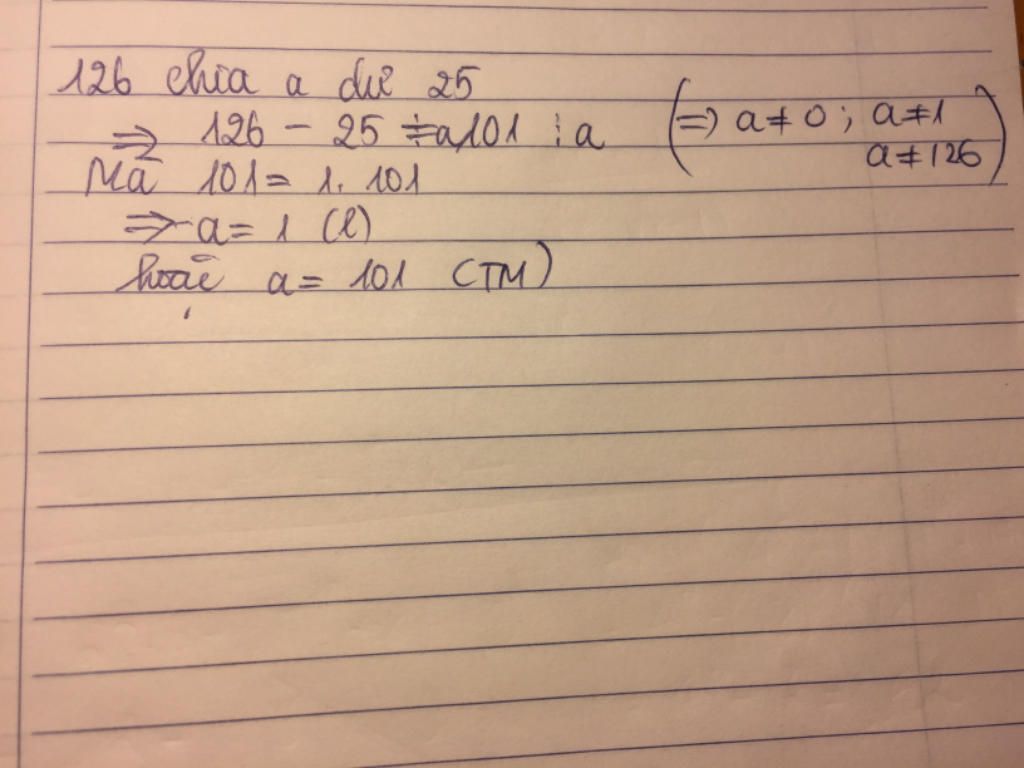 126 chia a dư 25
⇒ 126 - 25 = 101 ⋮ a (⇒ a ≠ 0 ; a ≠ 1
a ≠ 126)
Mà 101 = 1. 101
⇒ a = 1 (l)
hoặc a = 101 (TM)